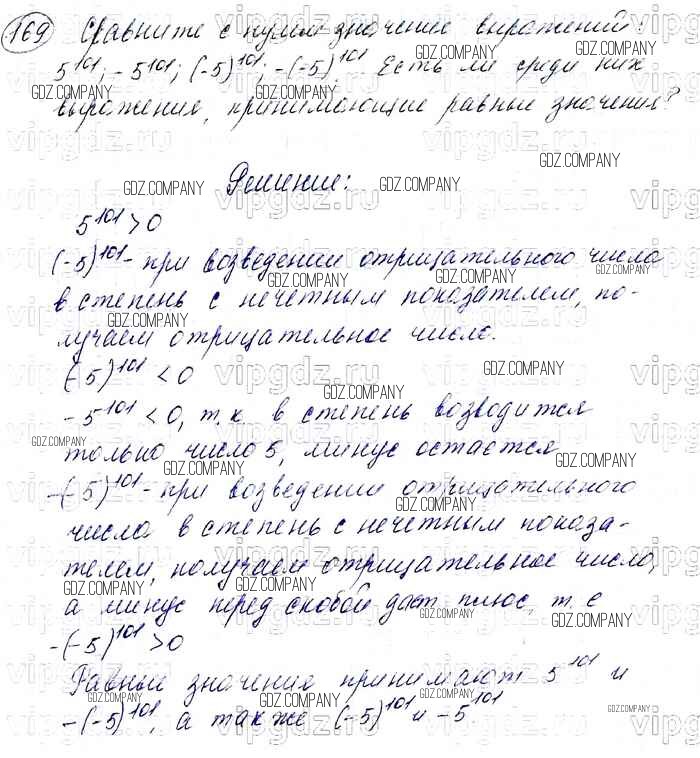 169 Сравните с нулем значение выражений:
5^101; -5^101; (-5)^101, -(-5)^101. Есть ли среди них
выражения, принимающие равные значения?
Решение:
5^101 > 0
(-5)^101 - при возведении отрицательного числа
в степень с нечетным показателем, по-
лучаем отрицательное число.
(-5)^101 < 0
-5^101 < 0, т.к. в степень возводится
только число 5, минус остается
-(-5)^101 - при возведении отрицательного
числа в степень с нечетным показа-
телем, получаем отрицательное число,
а минус перед скобой даст плюс, т.е
-(-5)^101 > 0
Равные значения принимают 5^101 и
-(-5)^101, а также (-5)^101 и -5^101
GDZ.COMPANY
vipgdz.ru